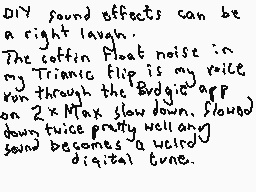 DIY sound effects can be
a right laugh.
The coffin float noise in
my Triamic flip is my voice
run through the Budgie app
on 2x Max slow down. Slowed
down twice pretty well any
sound becomes a weird
digital tune.